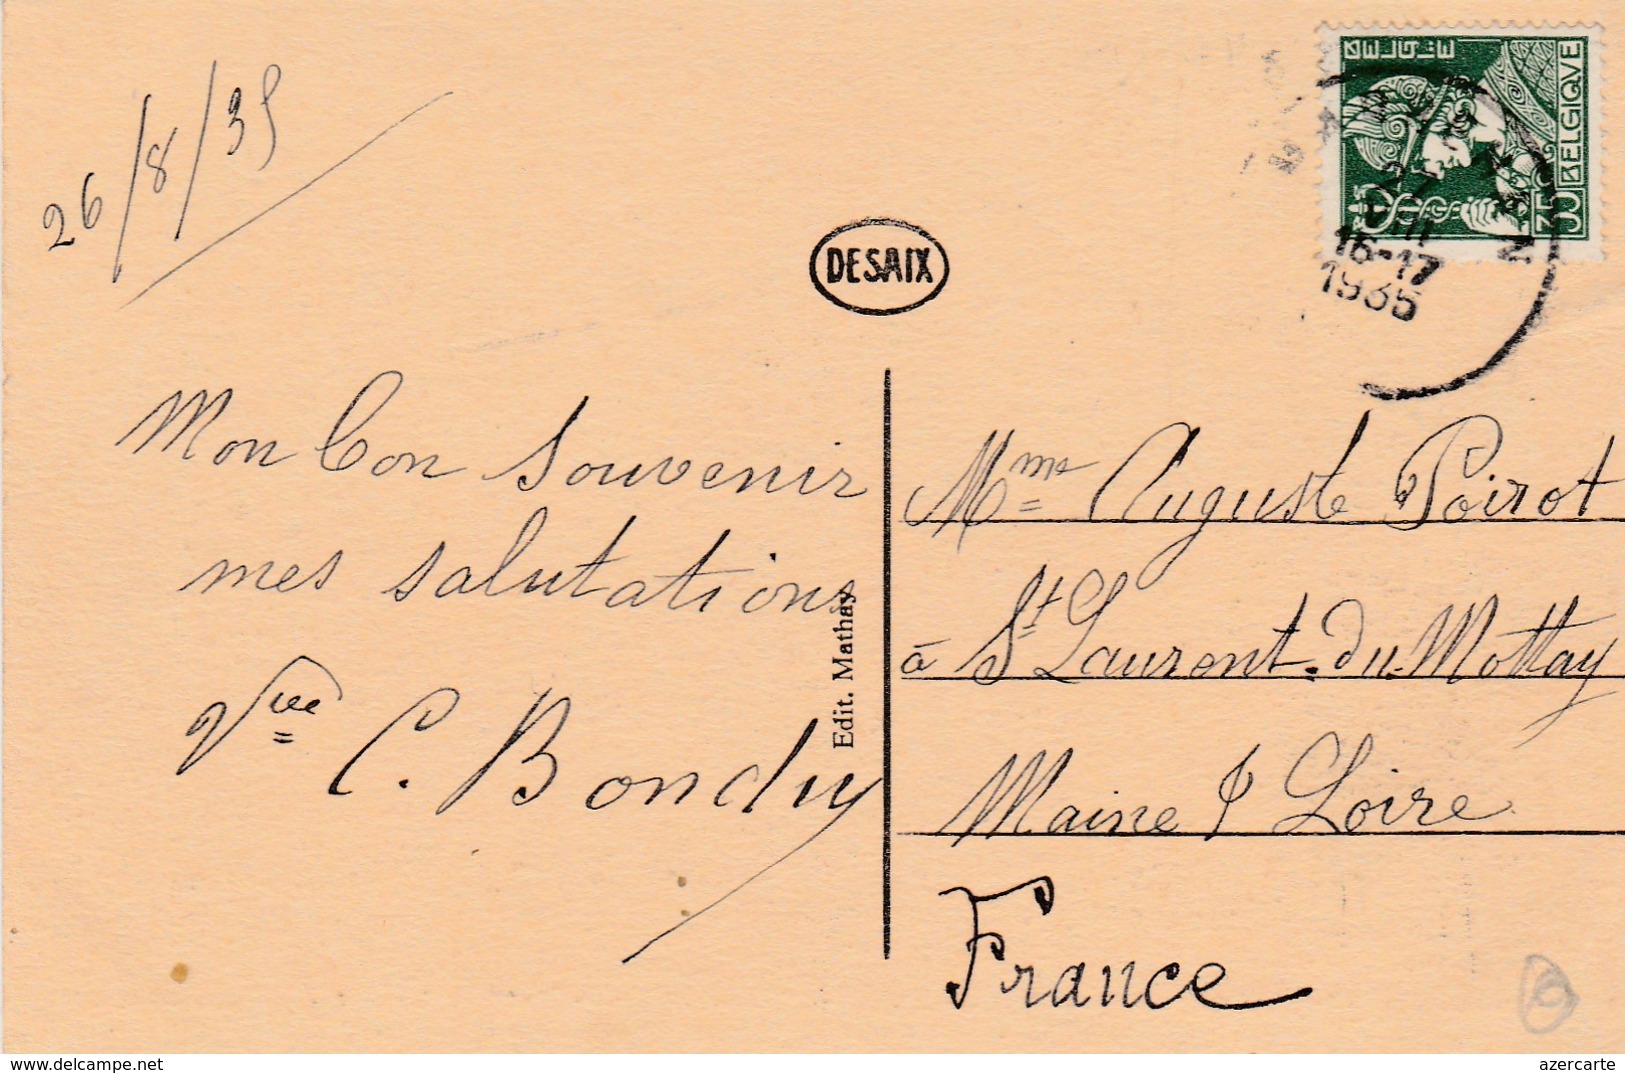 26/8/35
BELGIE
BELGIQVE
35
16-17
1935
DESAIX
Mon bon souvenir
mes salutations
Vve C. Bonduy
Edit. Mathay
Mme Auguste Poirot
à St Laurent-du-Mottay
Maine & Loire
France
www.delcampe.net
azercarte